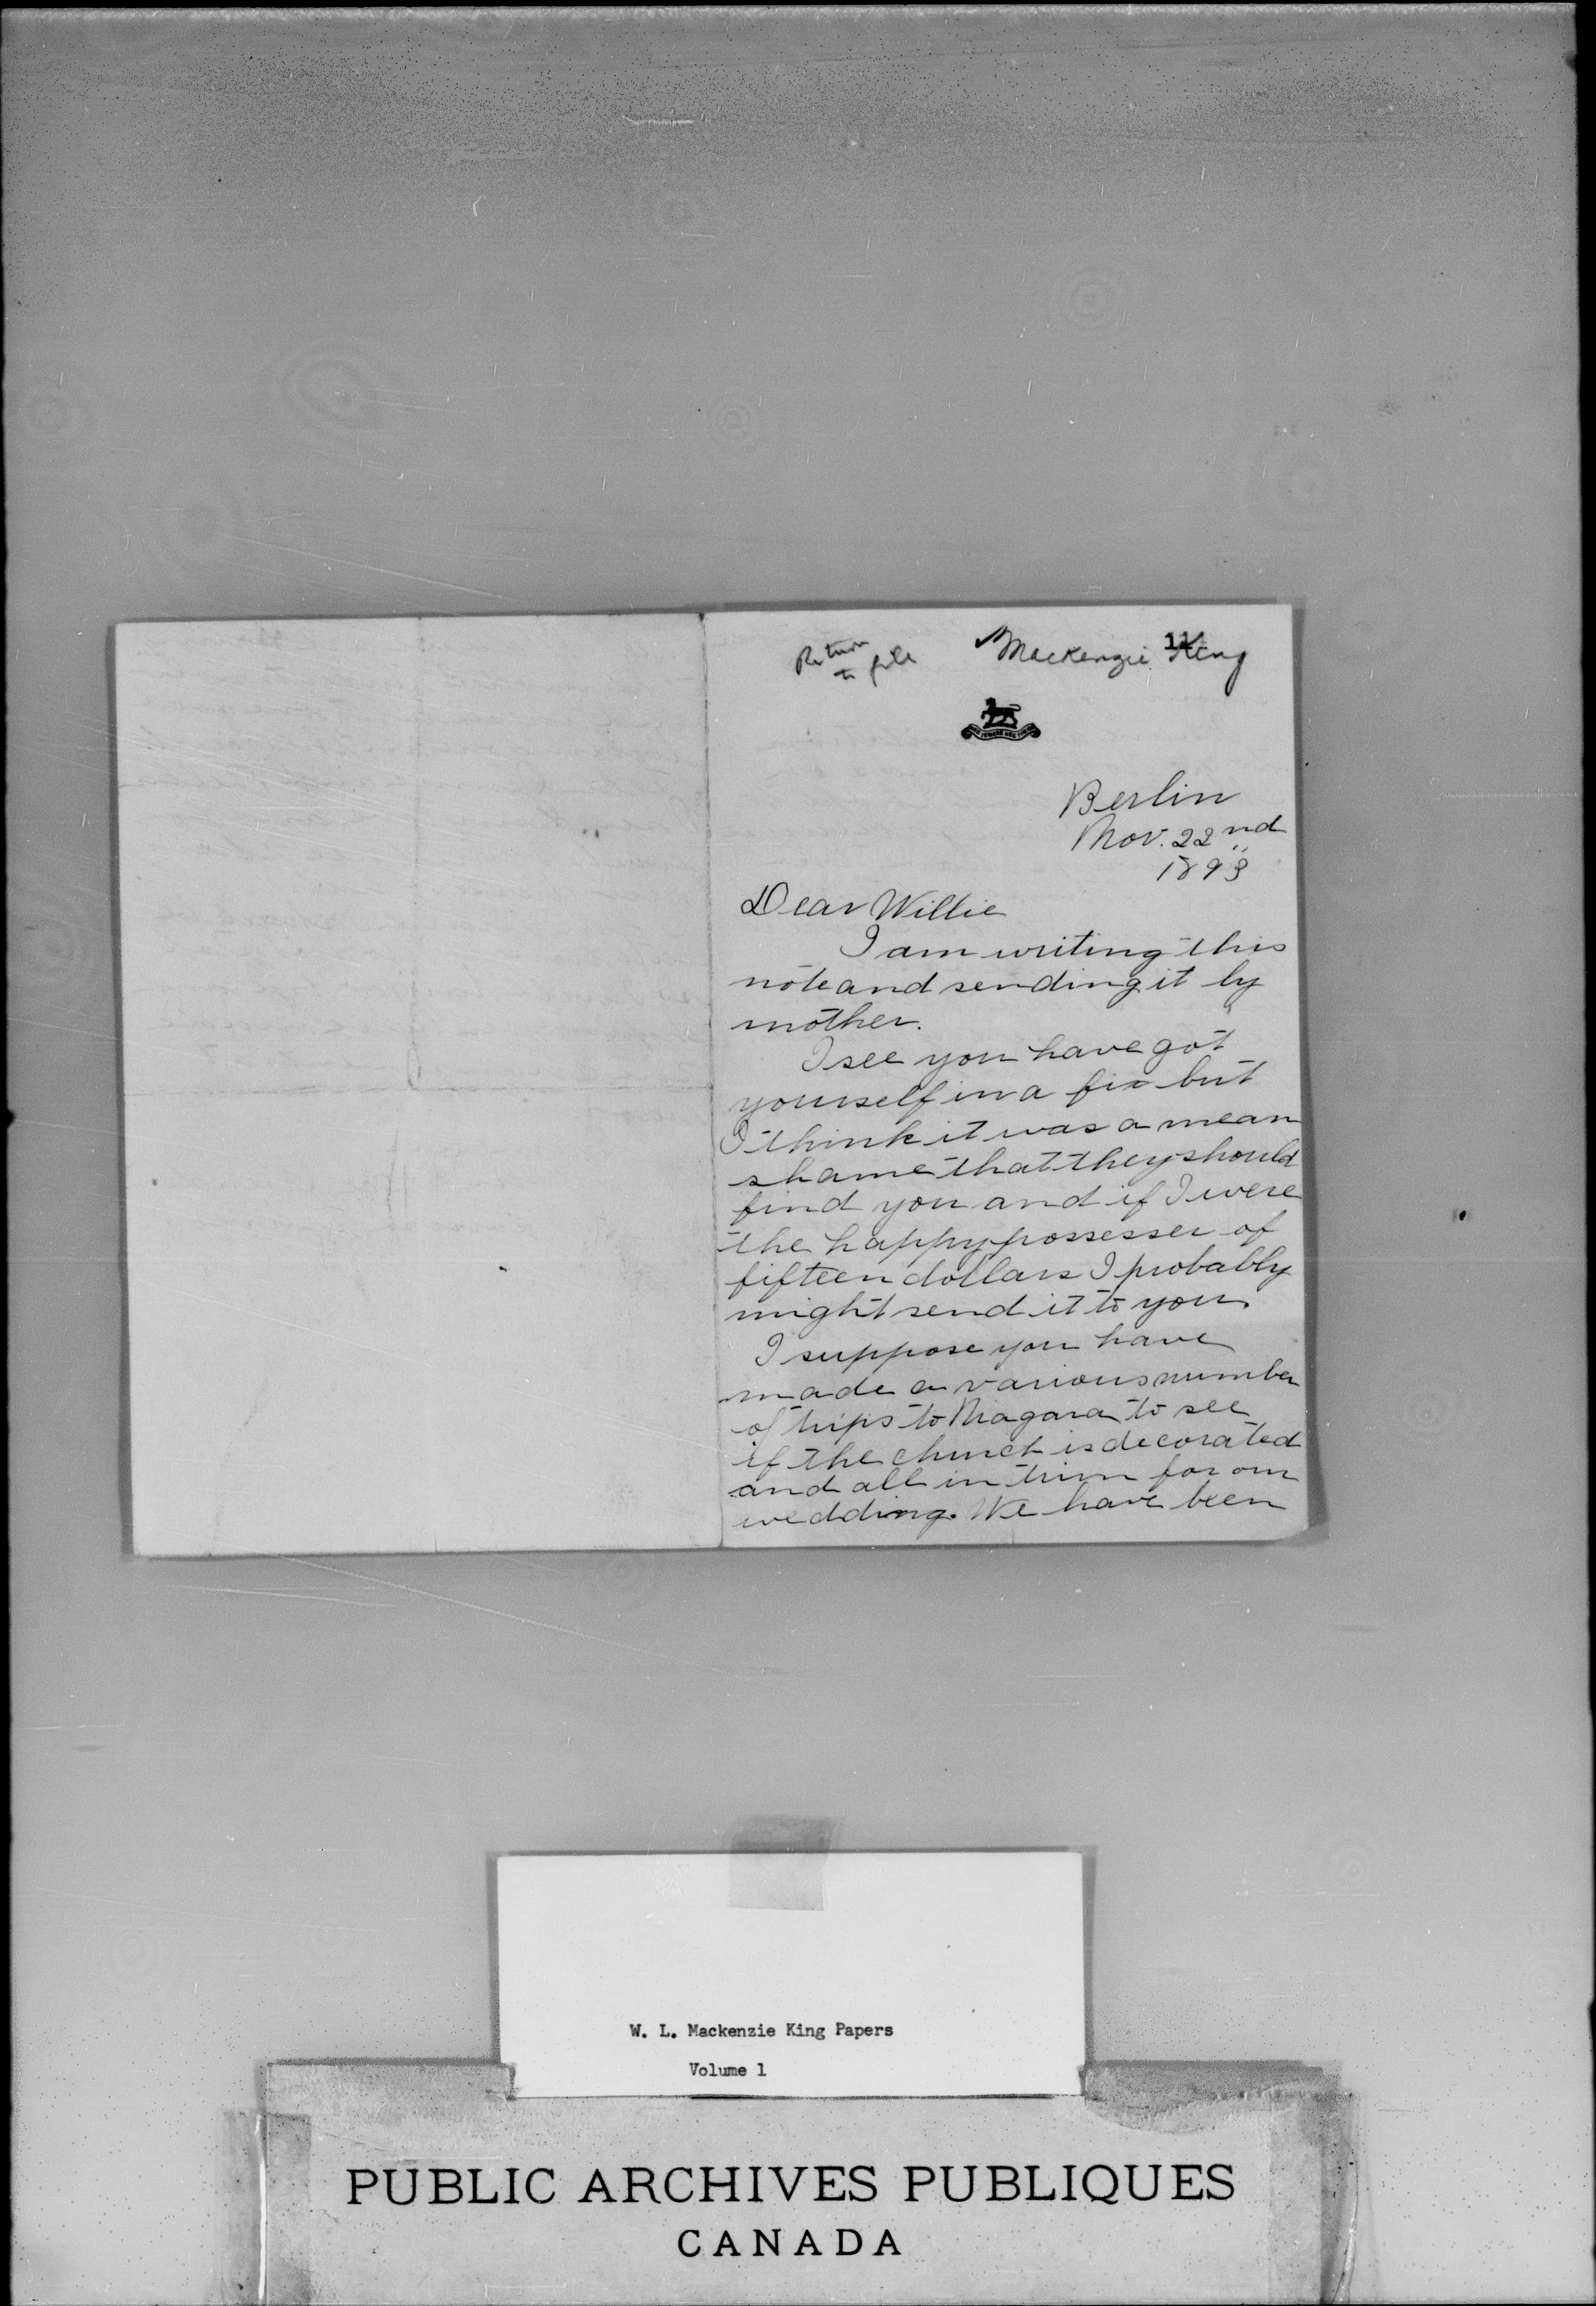 Return
to file
Mackenzie King
11
Berlin
Nov. 22nd
1893
Dear Willie
I am writing this
note and sending it by
mother.
I see you have got
yourself in a fix but
I think it was a mean
shame that they should
find you and if I were
the happy possesser of
fifteen dollars I probably
might send it to you.
I suppose you have
made a various number
of trips to Niagara to see
if the church is decorated
and all in trim for our
wedding. We have been
W. L. Mackenzie King Papers
Volume 1
PUBLIC ARCHIVES PUBLIQUES
CANADA